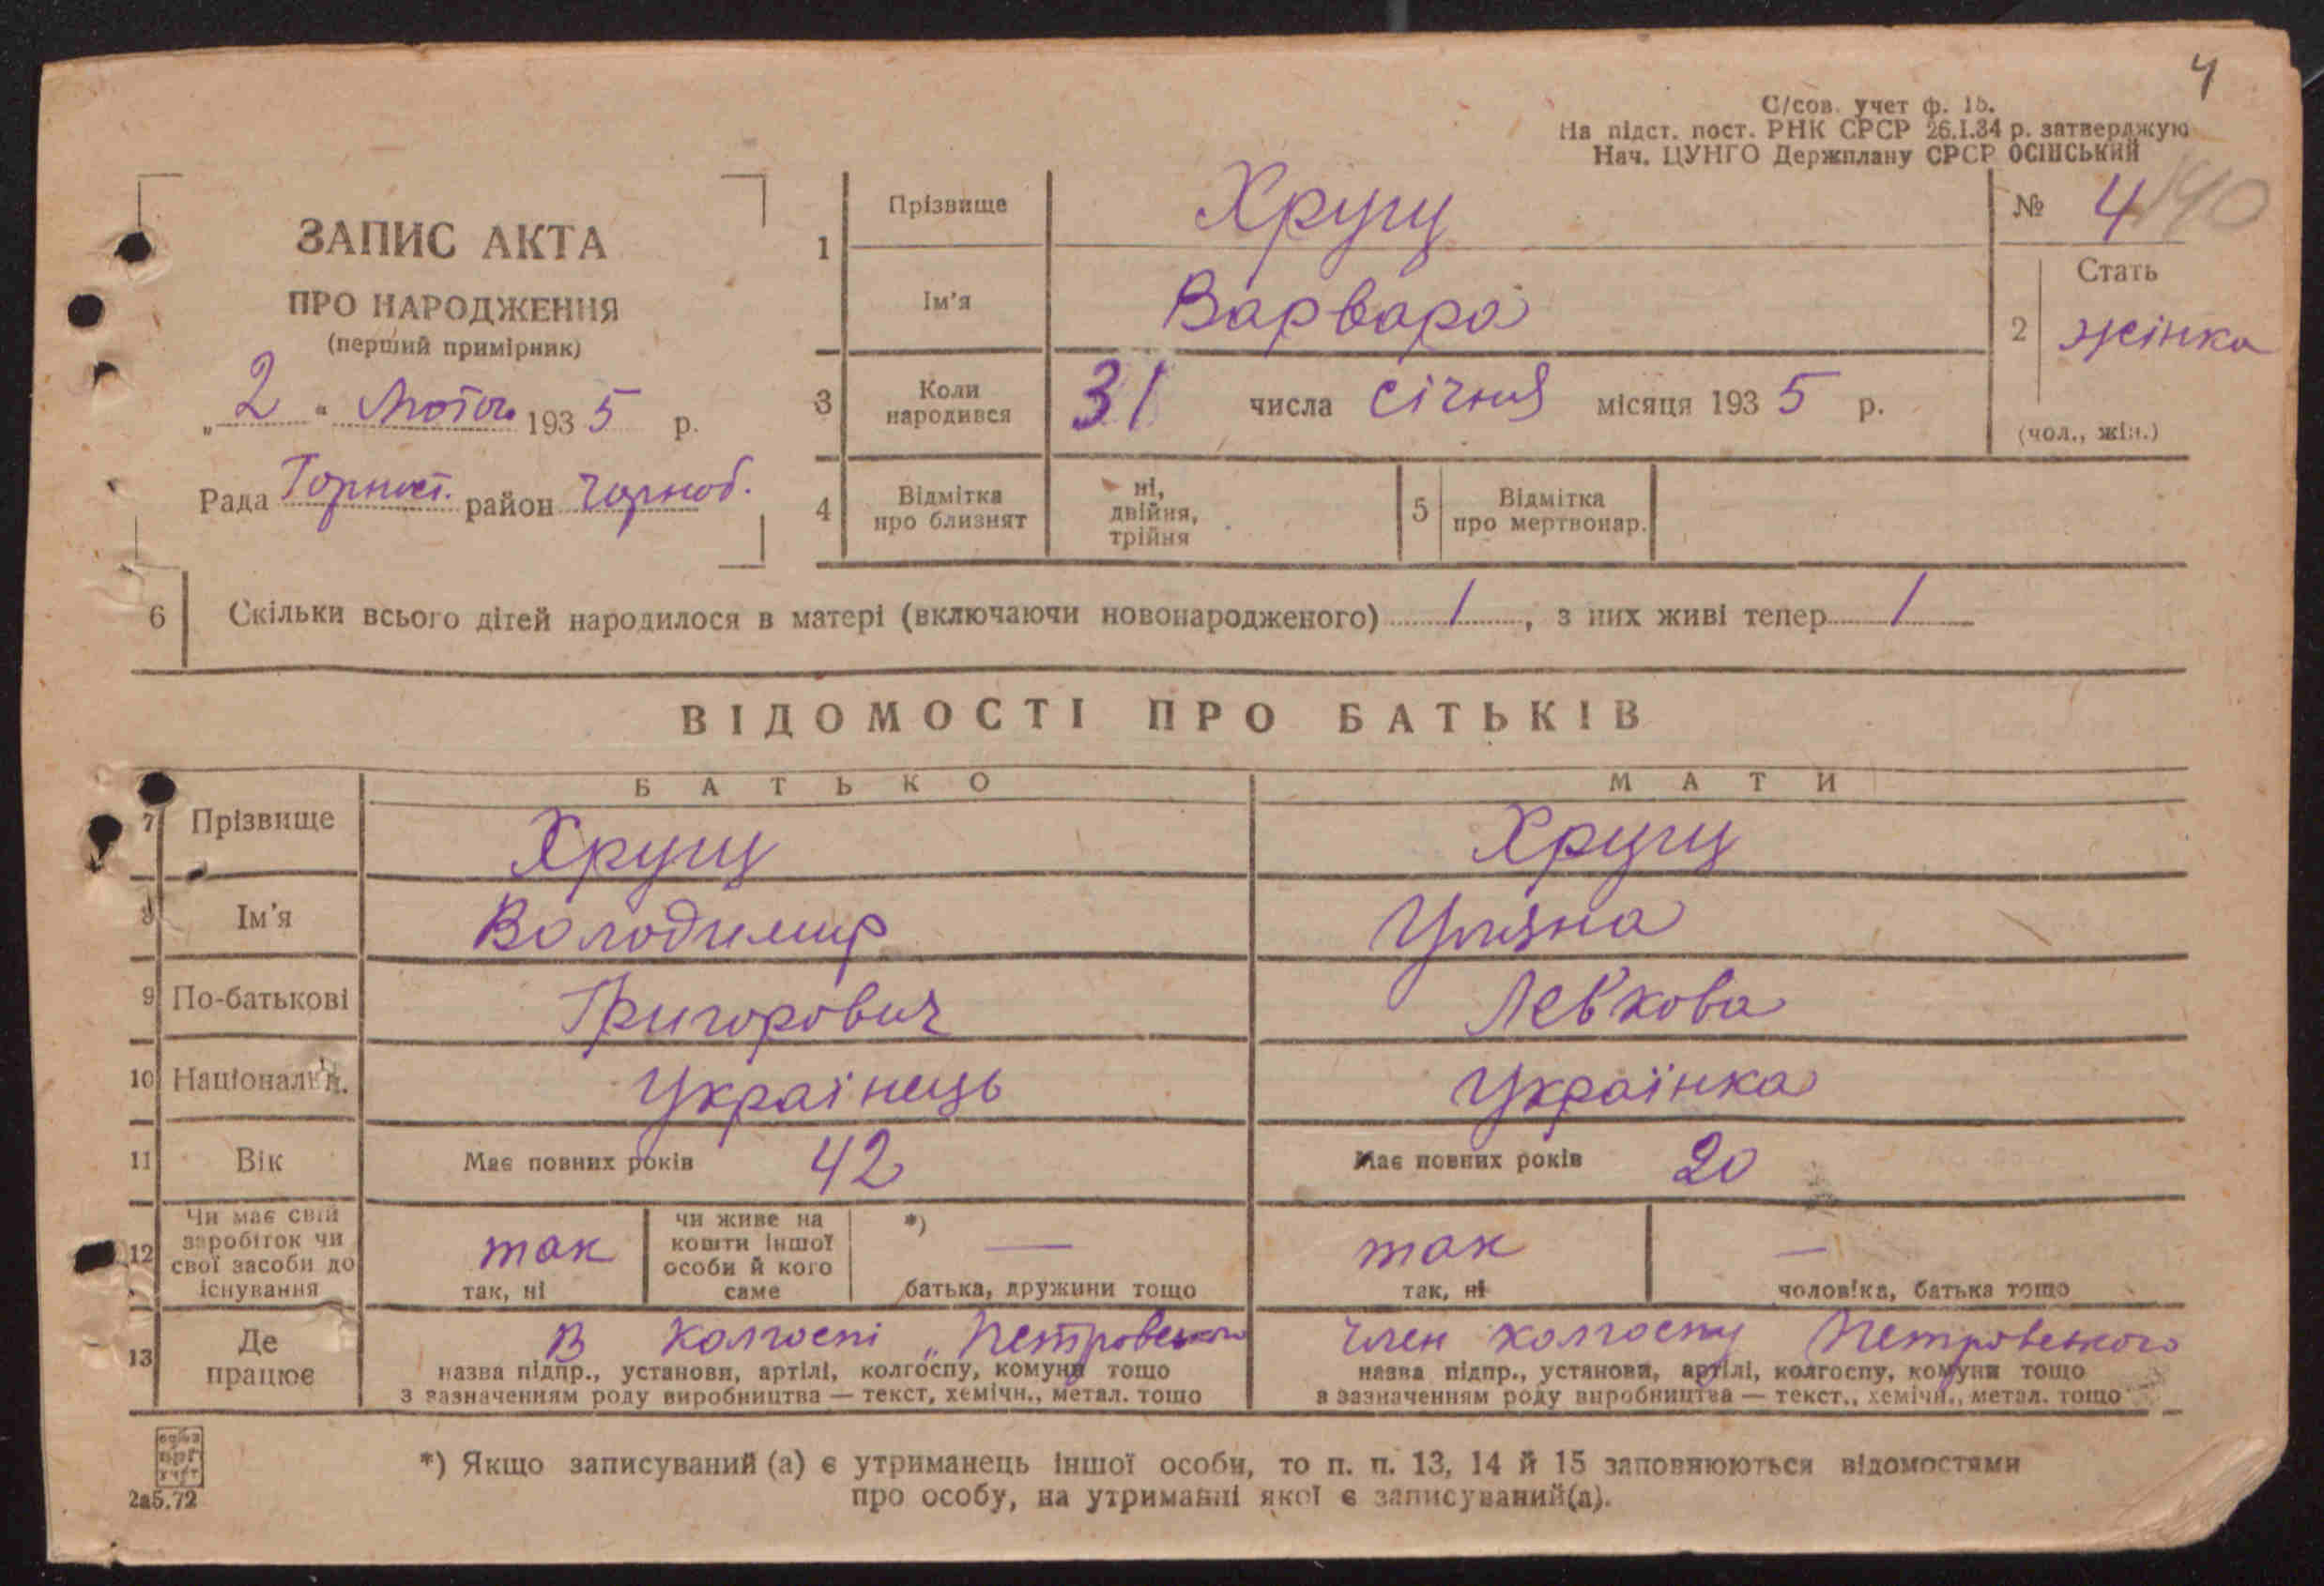 4
С/сов. учет ф. 15.
На підст. пост. РНК СРСР 26.I.34 р. затверджую
Нач. ЦУНГО Держплану СРСР ОСІНСЬКИЙ
ЗАПИС АКТА
ПРО НАРОДЖЕННЯ
(перший примірник)
„2“ Лютого 1935 р.
Рада Горност. район Чорноб.
1 Прізвище Хрущ
Ім'я Варвара
№ 4 140
2 Стать жінка
(чол., жін.)
3 Коли народився 31 числа січня місяця 1935 р.
4 Відмітка про близнят ні, двійня, трійня
5 Відмітка про мертвонар.
6 Скільки всього дітей народилося в матері (включаючи новонародженого) 1, з них живі тепер 1
ВІДОМОСТІ ПРО БАТЬКІВ
БАТЬКО МАТИ
7 Прізвище Хрущ Хрущ
8 Ім'я Володимир Уляна
9 По-батькові Григорович Левкова
10 Національн. Українець Українка
11 Вік Має повних років 42 Має повних років 20
12 Чи має свій заробіток чи свої засоби до існування
так
так, ні
чи живе на кошти іншої особи й кого саме
*) —
батька, дружини тощо
так
так, ні
—
чоловіка, батька тощо
13 Де працює
В колгоспі „Петровського
назва підпр., установи, артілі, колгоспу, комуни тощо
з зазначенням роду виробництва — текст, хемічн., метал. тощо
Член колгоспу Петровського
назва підпр., установи, артілі, колгоспу, комуни тощо
з зазначенням роду виробництва — текст., хемічн., метал. тощо
*) Якщо записуваний (а) є утриманець іншої особи, то п. п. 13, 14 й 15 заповнюються відомостями
про особу, на утриманні якої є записуваний(а).
2а5.72